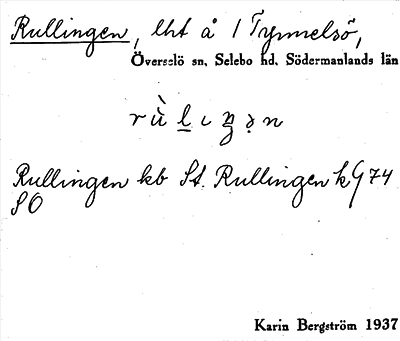 Rullingen, lht å 1 Tynnelsö,
Överselö sn, Selebo hd, Södermanlands län
Rullingen kb St. Rullingen k G 74
SO
Karin Bergström 1937